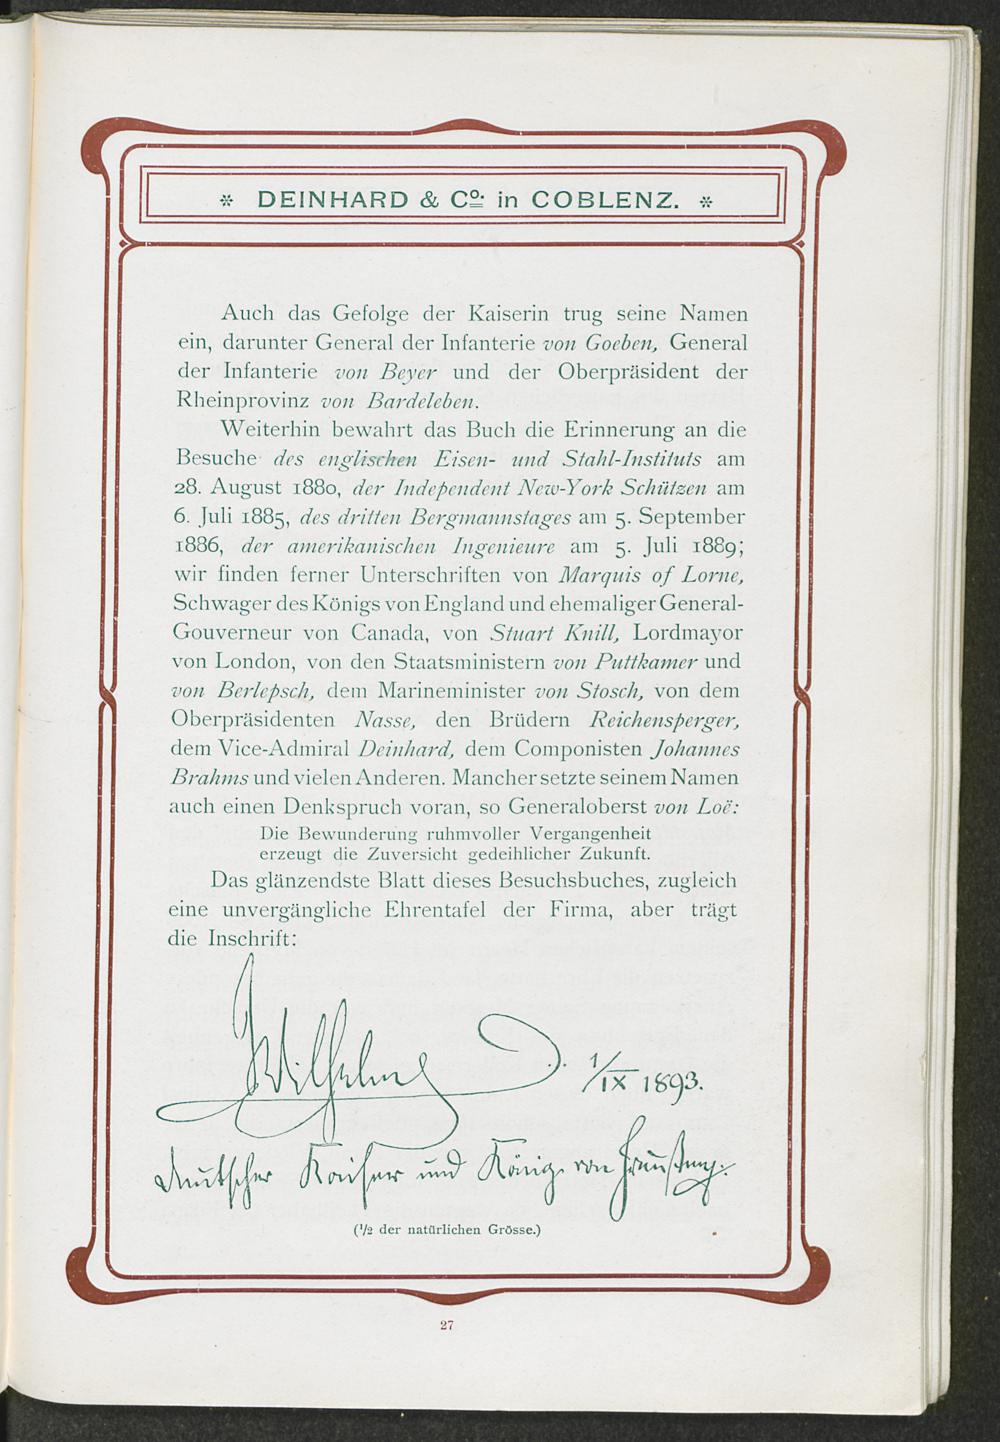 * DEINHARD & Co. in COBLENZ. *
Auch das Gefolge der Kaiserin trug seine Namen
ein, darunter General der Infanterie von Goeben, General
der Infanterie von Beyer und der Oberpräsident der
Rheinprovinz von Bardeleben.
Weiterhin bewahrt das Buch die Erinnerung an die
Besuche des englischen Eisen- und Stahl-Instituts am
28. August 1880, der Independent New-York Schützen am
6. Juli 1885, des dritten Bergmannstages am 5. September
1886, der amerikanischen Ingenieure am 5. Juli 1889;
wir finden ferner Unterschriften von Marquis of Lorne,
Schwager des Königs von England und ehemaliger General-
Gouverneur von Canada, von Stuart Knill, Lordmayor
von London, von den Staatsministern von Puttkamer und
von Berlepsch, dem Marineminister von Stosch, von dem
Oberpräsidenten Nasse, den Brüdern Reichensperger,
dem Vice-Admiral Deinhard, dem Componisten Johannes
Brahms und vielen Anderen. Mancher setzte seinem Namen
auch einen Denkspruch voran, so Generaloberst von Loë:
Die Bewunderung ruhmvoller Vergangenheit
erzeugt die Zuversicht gedeihlicher Zukunft.
Das glänzendste Blatt dieses Besuchsbuches, zugleich
eine unvergängliche Ehrentafel der Firma, aber trägt
die Inschrift:
Wilhelm 1/IX 1893.
Deutscher Kaiser und König von Preußen.
(1/2 der natürlichen Grösse.)
27